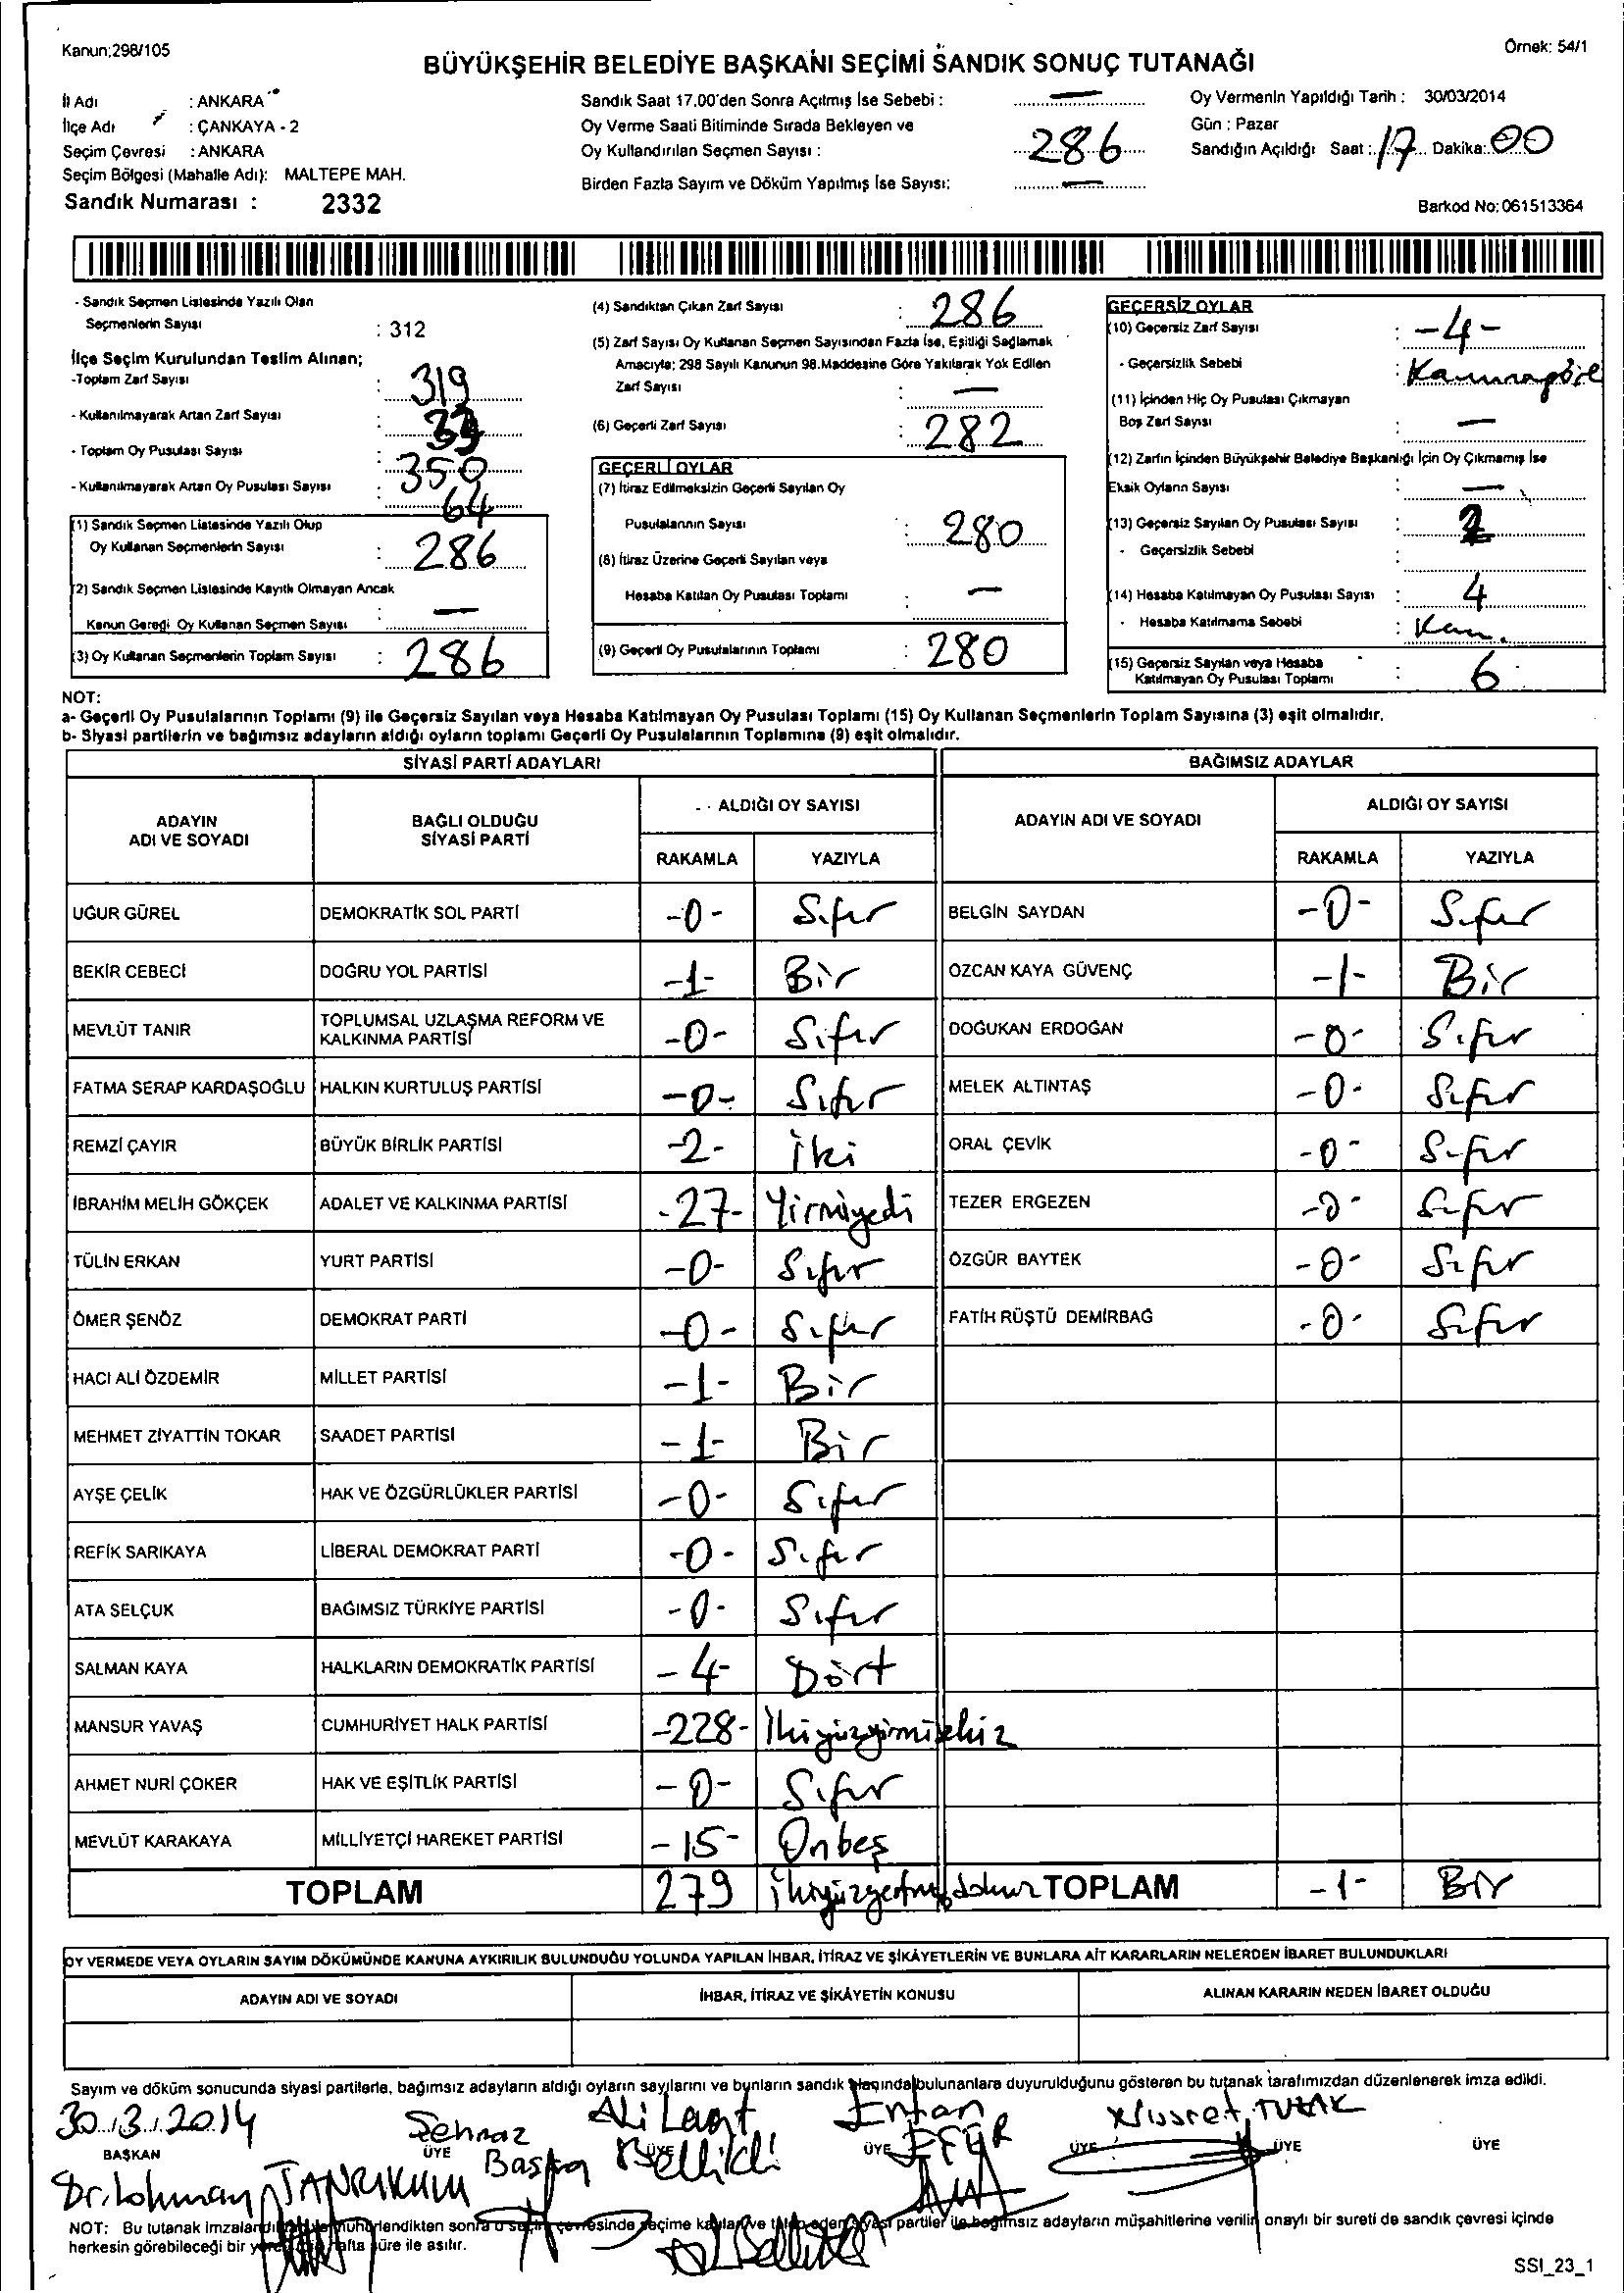 Kanun;298/105
Örnek: 54/1
BÜYÜKŞEHİR BELEDİYE BAŞKANI SEÇİMİ SANDIK SONUÇ TUTANAĞI
İl Adı : ANKARA
İlçe Adı : ÇANKAYA - 2
Seçim Çevresi : ANKARA
Seçim Bölgesi (Mahalle Adı): MALTEPE MAH.
Sandık Numarası : 2332
Sandık Saat 17.00'den Sonra Açılmış İse Sebebi : —
Oy Verme Saati Bitiminde Sırada Bekleyen ve
Oy Kullandırılan Seçmen Sayısı : 286
Birden Fazla Sayım ve Döküm Yapılmış İse Sayısı: —
Oy Vermenin Yapıldığı Tarih : 30/03/2014
Gün : Pazar
Sandığın Açıldığı Saat : 17 Dakika: 00
Barkod No: 061513364
- Sandık Seçmen Listesinde Yazılı Olan
Seçmenlerin Sayısı : 312
İlçe Seçim Kurulundan Teslim Alınan;
-Toplam Zarf Sayısı : 319
- Kullanılmayarak Artan Zarf Sayısı : 33
- Toplam Oy Pusulası Sayısı : 350
- Kullanılmayarak Artan Oy Pusulası Sayısı : 64
(1) Sandık Seçmen Listesinde Yazılı Olup
Oy Kullanan Seçmenlerin Sayısı : 286
(2) Sandık Seçmen Listesinde Kayıtlı Olmayan Ancak
Kanun Gereği Oy Kullanan Seçmen Sayısı : —
(3) Oy Kullanan Seçmenlerin Toplam Sayısı : 286
(4) Sandıktan Çıkan Zarf Sayısı : 286
(5) Zarf Sayısı Oy Kullanan Seçmen Sayısından Fazla İse, Eşitliği Sağlamak
Amacıyla; 298 Sayılı Kanunun 98.Maddesine Göre Yakılarak Yok Edilen
Zarf Sayısı : —
(6) Geçerli Zarf Sayısı : 282
GEÇERLİ OYLAR
(7) İtiraz Edilmeksizin Geçerli Sayılan Oy
Pusulalarının Sayısı : 280
(8) İtiraz Üzerine Geçerli Sayılan veya
Hesaba Katılan Oy Pusulası Toplamı : —
(9) Geçerli Oy Pusulalarının Toplamı : 280
GEÇERSİZ OYLAR
(10) Geçersiz Zarf Sayısı : -4-
- Geçersizlik Sebebi :
(11) İçinden Hiç Oy Pusulası Çıkmayan
Boş Zarf Sayısı : —
(12) Zarfın İçinden Büyükşehir Belediye Başkanlığı İçin Oy Çıkmamış İse
Eksik Oyların Sayısı : —
(13) Geçersiz Sayılan Oy Pusulası Sayısı : 2
- Geçersizlik Sebebi :
(14) Hesaba Katılmayan Oy Pusulası Sayısı : 4
- Hesaba Katılmama Sebebi : Kan.
(15) Geçersiz Sayılan veya Hesaba
Katılmayan Oy Pusulası Toplamı : 6
NOT:
a- Geçerli Oy Pusulalarının Toplamı (9) ile Geçersiz Sayılan veya Hesaba Katılmayan Oy Pusulası Toplamı (15) Oy Kullanan Seçmenlerin Toplam Sayısına (3) eşit olmalıdır.
b- Siyasi partilerin ve bağımsız adayların aldığı oyların toplamı Geçerli Oy Pusulalarının Toplamına (9) eşit olmalıdır.
SİYASİ PARTİ ADAYLARI BAĞIMSIZ ADAYLAR
ADAYIN ADI VE SOYADI BAĞLI OLDUĞU SİYASİ PARTİ ALDIĞI OY SAYISI ADAYIN ADI VE SOYADI ALDIĞI OY SAYISI
RAKAMLA YAZIYLA RAKAMLA YAZIYLA
UĞUR GÜREL DEMOKRATİK SOL PARTİ -0- Sıfır BELGİN SAYDAN -0- Sıfır
BEKİR CEBECİ DOĞRU YOL PARTİSİ -1- Bir ÖZCAN KAYA GÜVENÇ -1- Bir
MEVLÜT TANIR TOPLUMSAL UZLAŞMA REFORM VE KALKINMA PARTİSİ -0- Sıfır DOĞUKAN ERDOĞAN -0- Sıfır
FATMA SERAP KARDAŞOĞLU HALKIN KURTULUŞ PARTİSİ -0- Sıfır MELEK ALTINTAŞ -0- Sıfır
REMZİ ÇAYIR BÜYÜK BİRLİK PARTİSİ -2- İki ORAL ÇEVİK -0- Sıfır
İBRAHİM MELİH GÖKÇEK ADALET VE KALKINMA PARTİSİ -27- Yirmiyedi TEZER ERGEZEN -0- Sıfır
TÜLİN ERKAN YURT PARTİSİ -0- Sıfır ÖZGÜR BAYTEK -0- Sıfır
ÖMER ŞENÖZ DEMOKRAT PARTİ -0- Sıfır FATİH RÜŞTÜ DEMİRBAĞ -0- Sıfır
HACI ALİ ÖZDEMİR MİLLET PARTİSİ -1- Bir
MEHMET ZİYATTİN TOKAR SAADET PARTİSİ -1- Bir
AYŞE ÇELİK HAK VE ÖZGÜRLÜKLER PARTİSİ -0- Sıfır
REFİK SARIKAYA LİBERAL DEMOKRAT PARTİ -0- Sıfır
ATA SELÇUK BAĞIMSIZ TÜRKİYE PARTİSİ -0- Sıfır
SALMAN KAYA HALKLARIN DEMOKRATİK PARTİSİ -4- Dört
MANSUR YAVAŞ CUMHURİYET HALK PARTİSİ -228- İkiyüzyirmisekiz
AHMET NURİ ÇOKER HAK VE EŞİTLİK PARTİSİ -0- Sıfır
MEVLÜT KARAKAYA MİLLİYETÇİ HAREKET PARTİSİ -15- Onbeş
TOPLAM 279 ikiyüzyetmişdokuz TOPLAM -1- Bir
OY VERMEDE VEYA OYLARIN SAYIM DÖKÜMÜNDE KANUNA AYKIRILIK BULUNDUĞU YOLUNDA YAPILAN İHBAR, İTİRAZ VE ŞİKÂYETLERİN VE BUNLARA AİT KARARLARIN NELERDEN İBARET BULUNDUKLARI
ADAYIN ADI VE SOYADI İHBAR, İTİRAZ VE ŞİKÂYETİN KONUSU ALINAN KARARIN NEDEN İBARET OLDUĞU
Sayım ve döküm sonucunda siyasi partilerle, bağımsız adayların aldığı oyların sayılarını ve bunların sandık başında bulunanlara duyurulduğunu gösteren bu tutanak tarafımızdan düzenlenerek imza edildi.
30.3.2014 Şehnaz Ali Nusret
BAŞKAN ÜYE ÜYE ÜYE ÜYE ÜYE ÜYE
Dr. Lokman TANRIKULU
NOT: Bu tutanak imzalandıktan ve mühürlendikten sonra o seçim çevresinde seçime katılan ve talep eden siyasi partiler ile bağımsız adayların müşahitlerine verilir, onaylı bir sureti de sandık çevresi içinde
herkesin görebileceği bir yere bir hafta süre ile asılır.
SSI_23_1